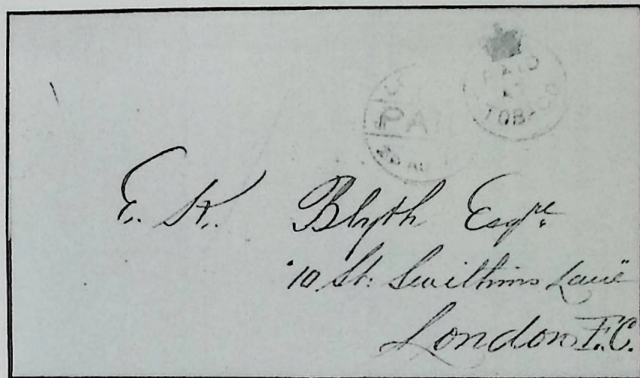 PAID
AT
TOBAGO
PAI
E. K. Blyth Esqre
"10 St. Swithins Lane"
London E.C.